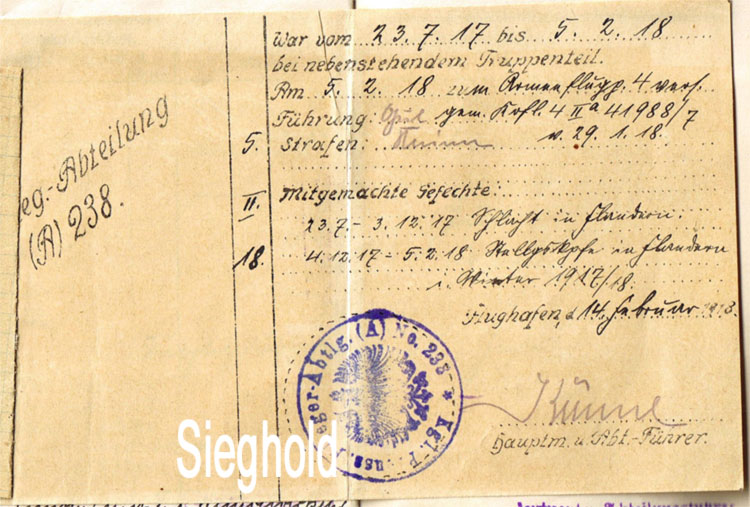 eg.-Abteilung
(A) 238.
5.
II.
18
War vom 23.7.17 bis 5.2.18
bei nebenstehendem Truppenteil.
Am 5.2.18 zum Armeeflugp. 4 vers.
Führung: gem. Kofl. 4 IIa 41988/7
Strafen: v. 29.1.18.
Mitgemachte Gefechte:
23.7 – 3.12.17 Schlacht in Flandern.
4.12.17 – 5.2.18 Stellgskpfe in Flandern
i. Winter 1917/18.
Flughafen, d. 14. Februar 1918.
Hauptm. u. Abt.-Führer.
eger-Abtlg. (A) No. 238 * Kgl. P
uss.
Sieghold